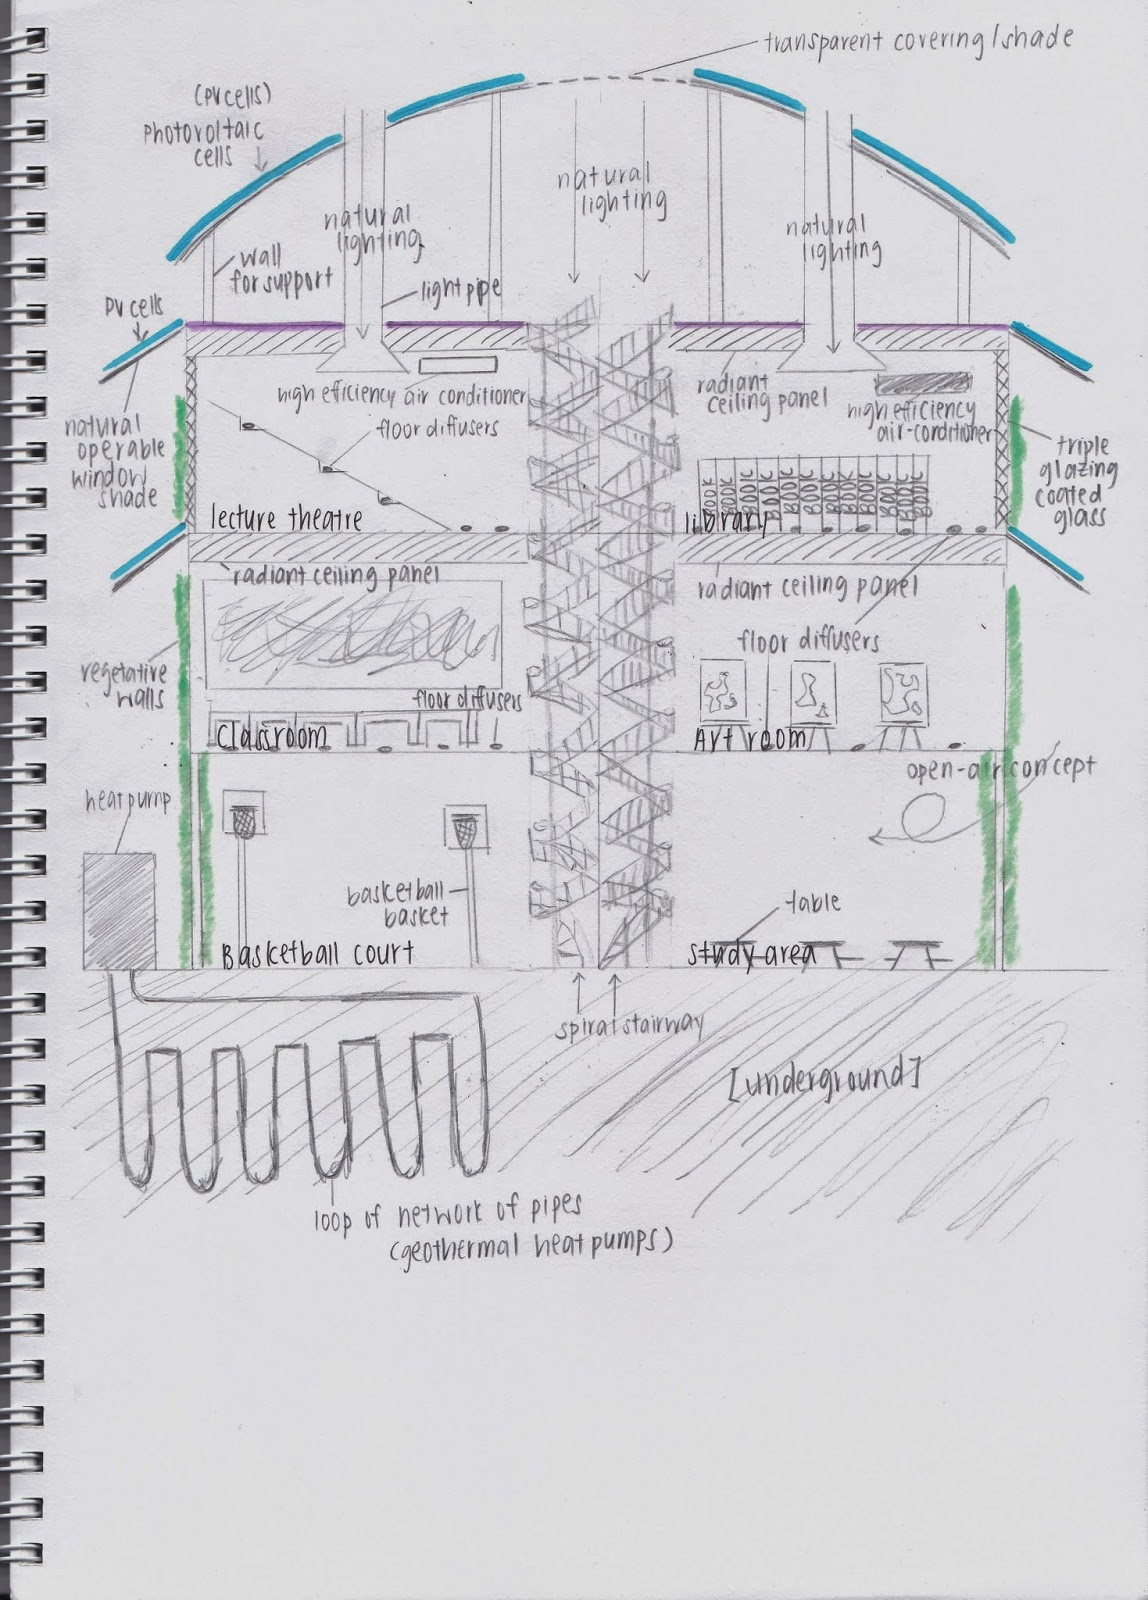 transparent covering/shade
(PV cells)
photovoltaic
cells
natural
lighting
natural
lighting
natural
lighting
wall
for support
light pipe
PV cells
high efficiency air conditioner
radiant
ceiling panel
high efficiency
air-conditioner
floor diffusers
natural
operable
window
shade
triple
glazing
coated
glass
BOOK BOOK BOOK BOOK BOOK BOOK BOOK BOOK BOOK BOOK BOOK BOOK
lecture theatre
library
radiant ceiling panel
radiant ceiling panel
floor diffusers
vegetative
walls
floor diffusers
classroom
Art room
open-air concept
heat pump
basketball
basket
table
Basketball court
study area
spiral stairway
[underground]
loop of network of pipes
(geothermal heat pumps)